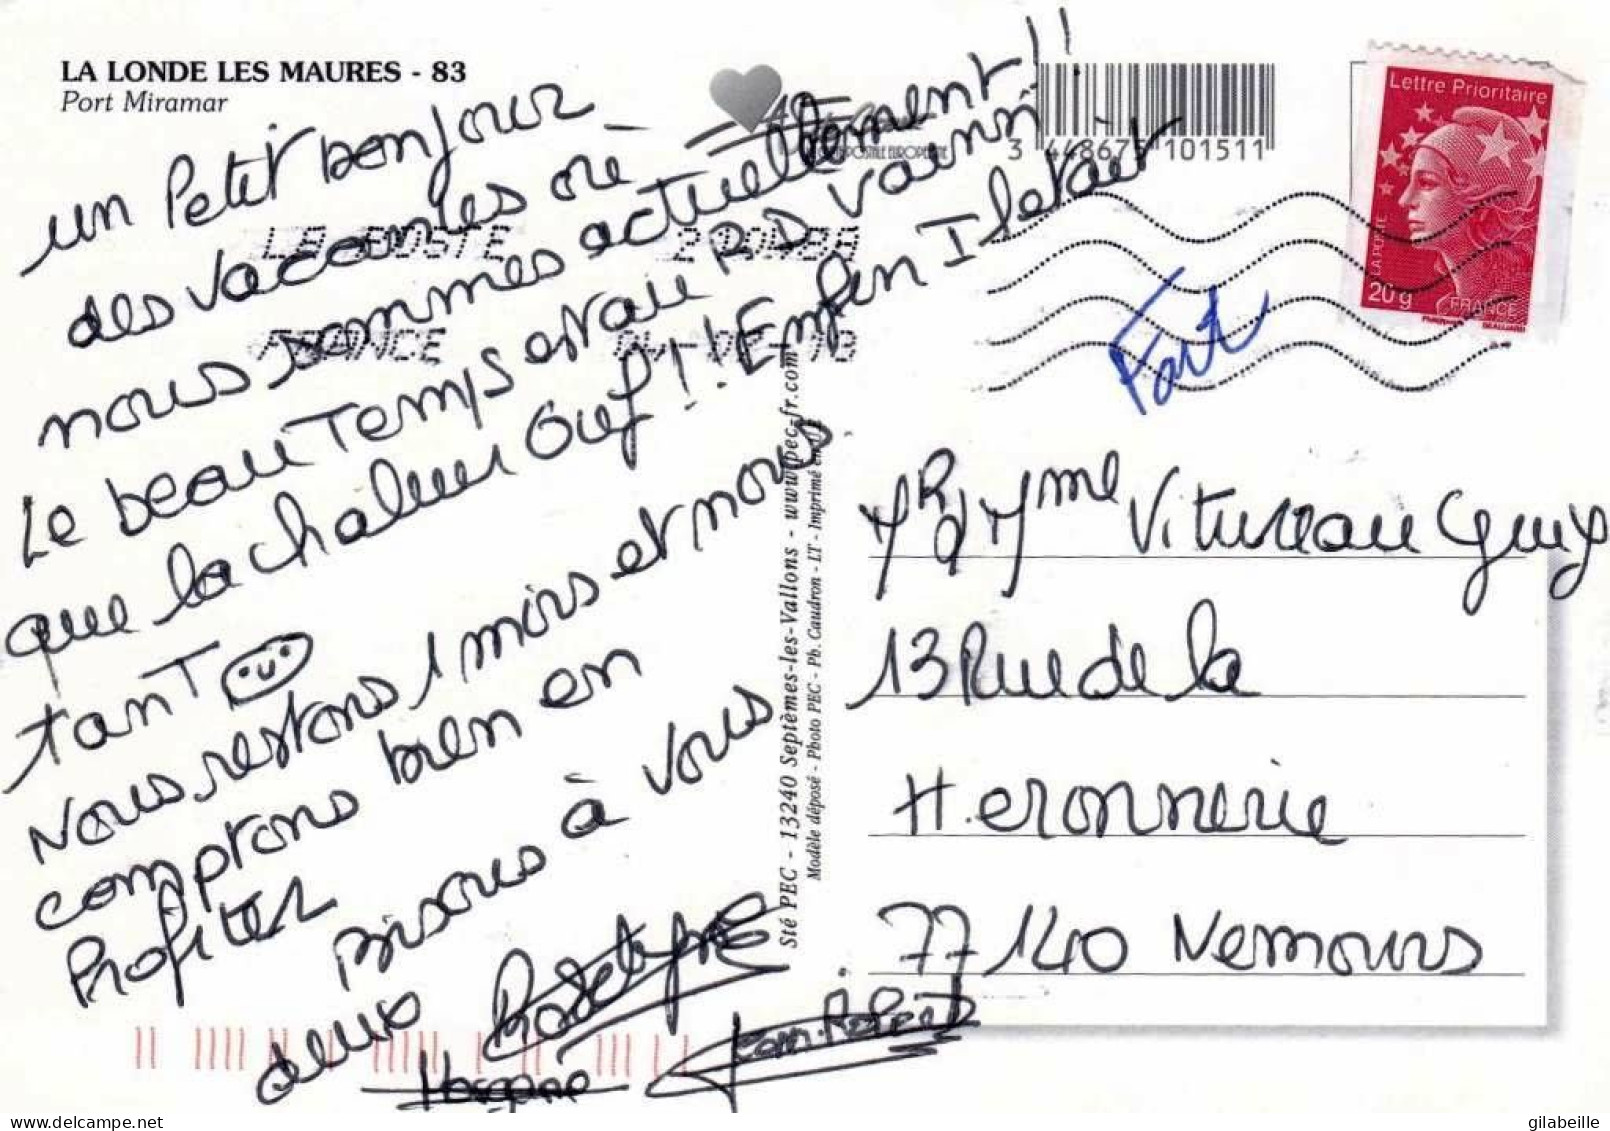 LA LONDE LES MAURES - 83
Port Miramar
un Petit bonjour
des vacances où
nous sommes actuellement !!
Le beau Temps est au RDV
que la chaleur ouf !! Enfin Il fetait
tant
Nous restons 1 mois et nous
comptons bien en
Profiter
Bisous à vous
deux Roselyne
Jean-Robert
3 448675 101511
Lettre Prioritaire
LA POSTE
20g
FRANCE
LA POSTE
FRANCE
Fait
Mr & Mme Vitureau Guy
13 Rue de la
Heronnerie
77140 Nemours
Sté PEC - 13240 Septèmes-les-Vallons - www.pec-fr.com
Modèle déposé - Photo PEC - Ph. Caudron - LT - Imprimé en
delcampe.net
gilabeille